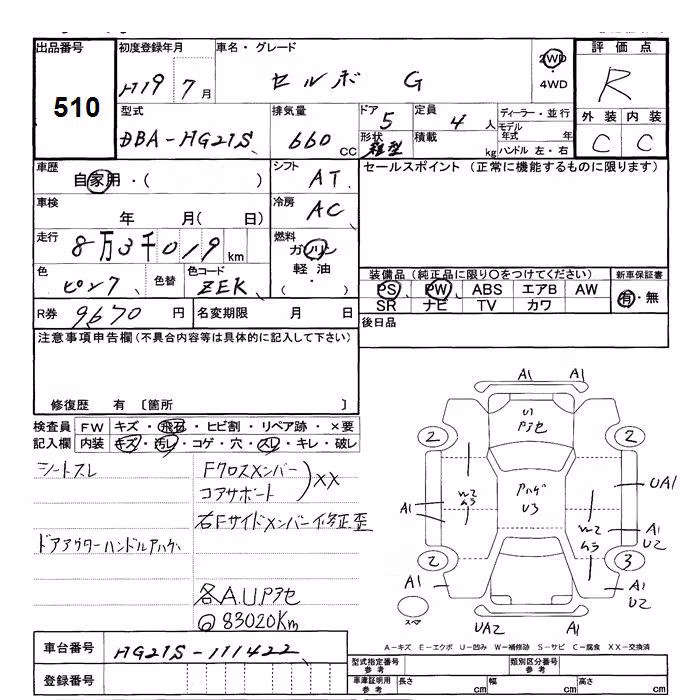 出品番号
510
初度登録年月
H19 7月
車名・グレード
セルボ G
2WD
・
4WD
評価点
R
外装 内装
C C
型式
DBA-HG21S
排気量
660 cc
ドア 5
形状 箱型
定員 4 人
積載 kg
ディーラー・並行
モデル
年式 年
ハンドル 左・右
車歴
自家用・( )
シフト
AT
セールスポイント (正常に機能するものに限ります)
車検
年 月( 日)
冷房
AC
走行
8万3千019 km
燃料
ガソリン
軽油
( )
色
ピンク
色替
色コード
ZEK
装備品 (純正品に限り○をつけてください)
新車保証書
PS PW ABS エアB AW
SR ナビ TV カワ
有・無
R券 9,670 円
名変期限 月 日
後日品
注意事項申告欄 (不具合内容等は具体的に記入して下さい)
修復歴 有 〔箇所 〕
検査員
記入欄
FW キズ・飛石・ヒビ割・リペア跡・×要
内装 キズ・汚レ・コゲ・穴・スレ・キレ・破レ
シートスレ
Fクロスメンバー
コアサポート
)XX
右Fサイドメンバー修正歪
ドアアウターハンドルアハゲ
各A.U.Pアセ
@83020Km
A1 A1
U1
Pアセ
2 2
W2
ムラ
アハゲ
U3
W2
ムラ
UA1
A1
A1
U2
2 3
A1
A1
U2
スペア
UA2 A1
A-キズ E-エクボ U-凹み W-補修跡 S-サビ C-腐食 XX-交換済
車台番号
HG21S-111422
登録番号
型式指定番号
参考
類別区分番号
参考
車庫証明用
参考
長さ cm
幅 cm
高さ cm